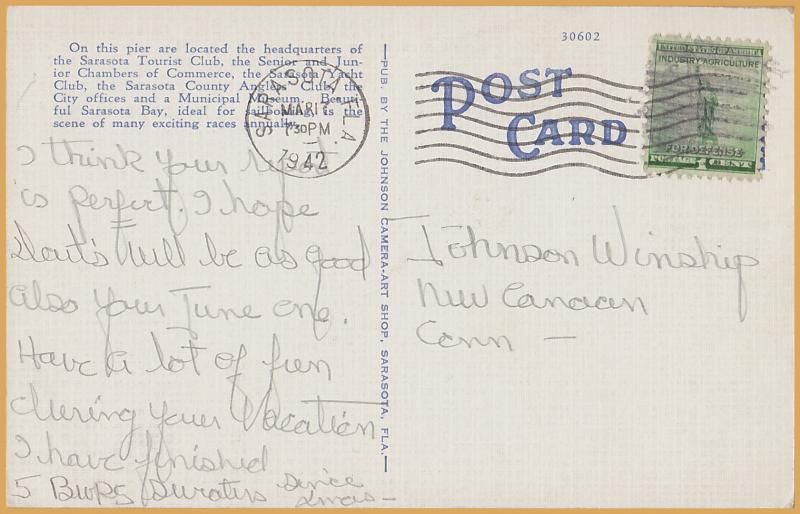 On this pier are located the headquarters of
the Sarasota Tourist Club, the Senior and Jun-
ior Chambers of Commerce, the Sarasota Yacht
Club, the Sarasota County Anglers Club, the
City offices and a Municipal Museum. Beauti-
ful Sarasota Bay, ideal for sailboating, is the
scene of many exciting races annually.
I think your
is perfect. I hope
will be as good
also your June one.
Have a lot of fun
during your Vacation
I have finished
5 since
Xmas —
PUB. BY THE JOHNSON CAMERA-ART SHOP, SARASOTA, FLA.
30602
SARASOTA, FLA.
MAR 17
7 30 PM
1942
POST
CARD
UNITED STATES OF AMERICA
INDUSTRY AGRICULTURE
FOR DEFENSE
POSTAGE 1 CENTS
Johnson Winship
New Canaan
Conn —